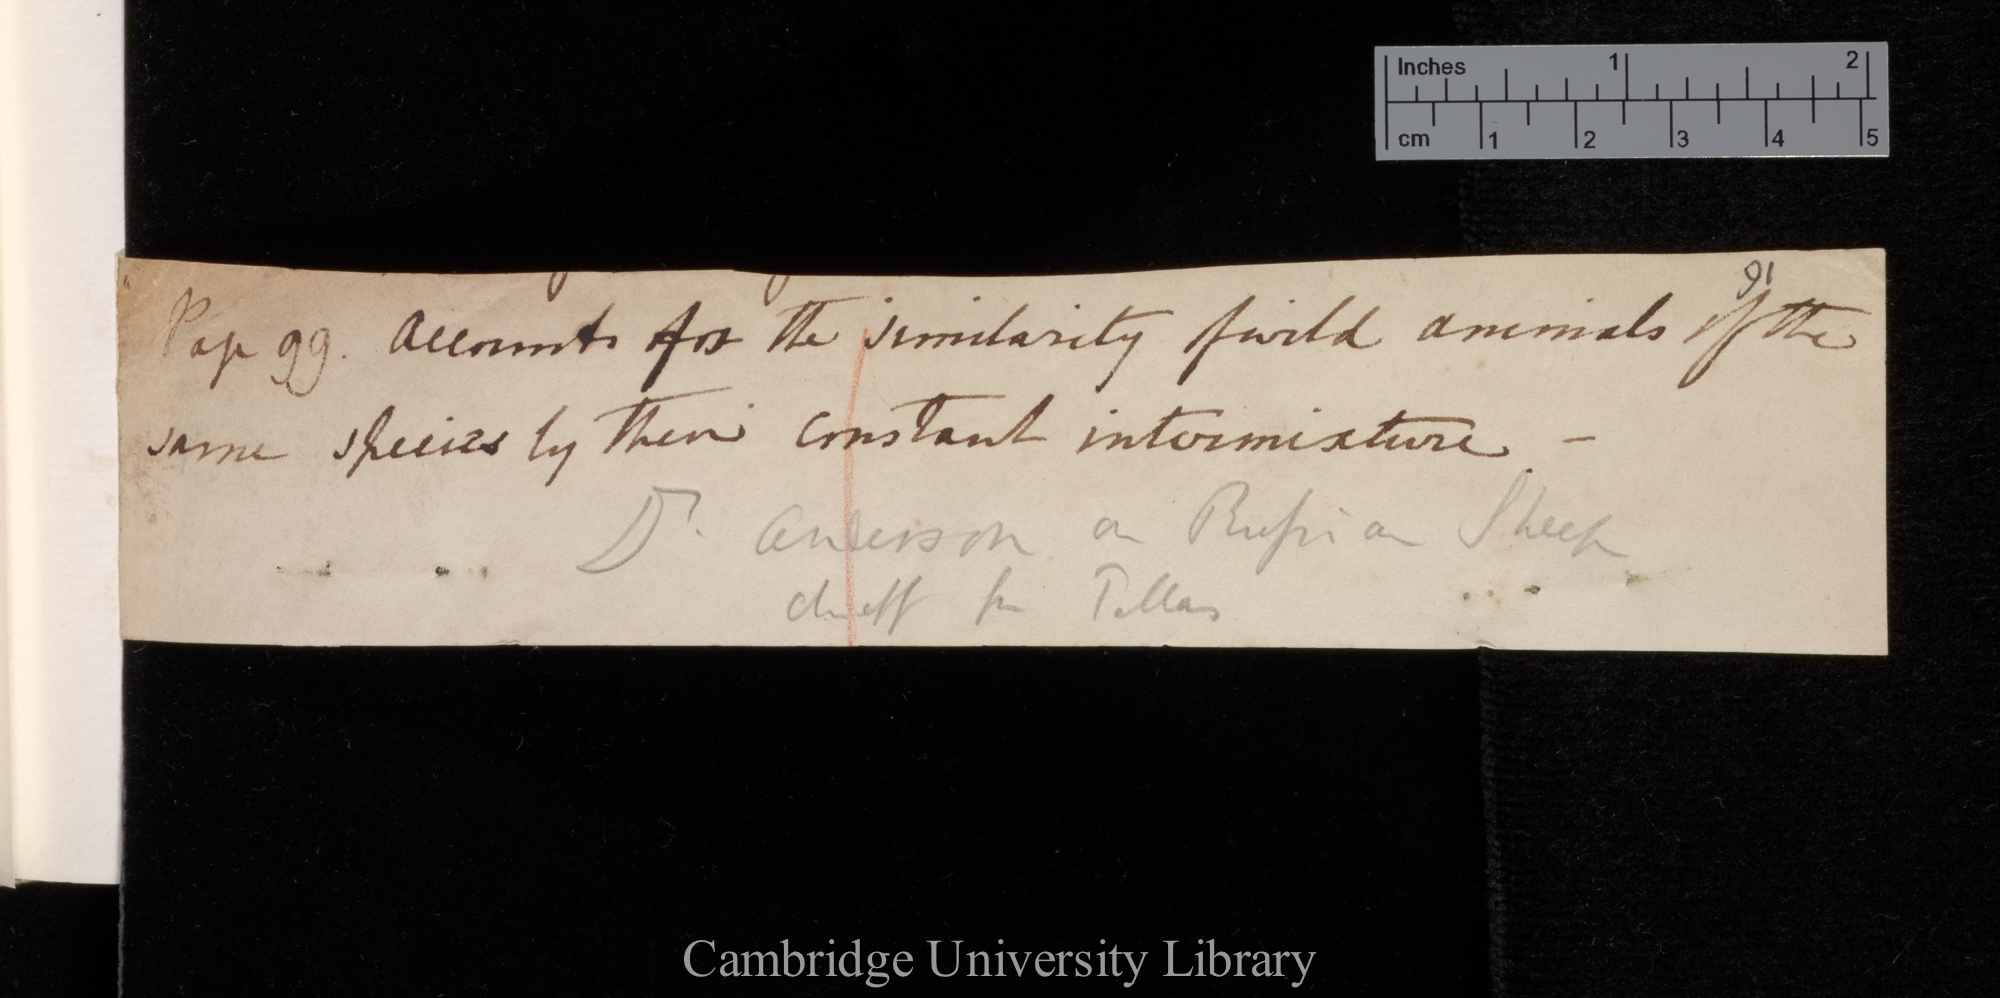 Inches 1 2
cm 1 2 3 4 5
91
Page 99. Accounts for the similarity of wild animals of the
same species by their constant intermixture –
Dr. Anderson on Russian Sheep
chiefly from Pallas
Cambridge University Library